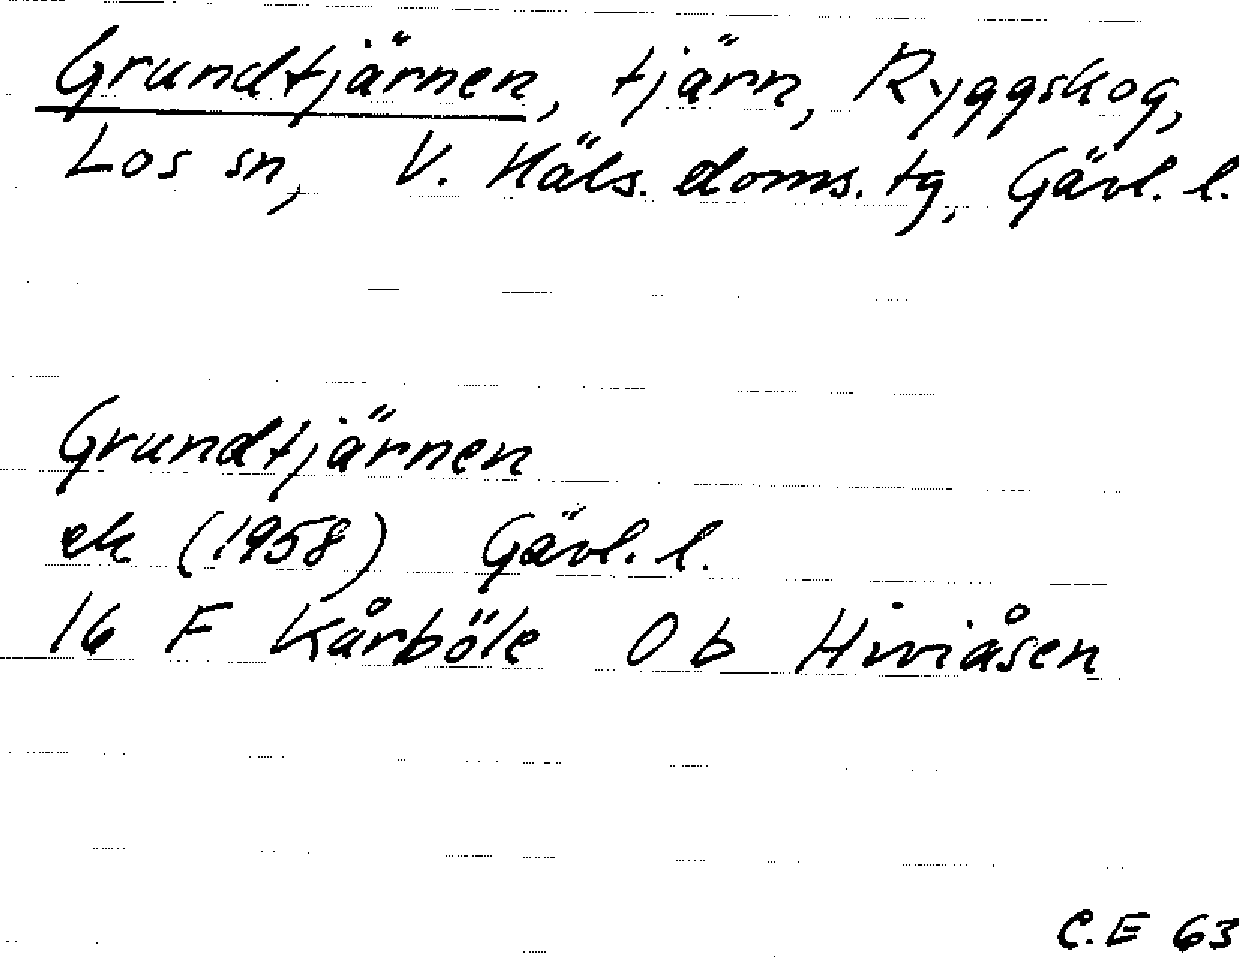 Grundtjärnen, tjärn, Ryggskog,
Los sn, V. Häls. doms. tg, Gävl. l.
Grundtjärnen
ek (1958) Gävl. l.
16 F Kårböle 0 b Hiviåsen
C.E 63